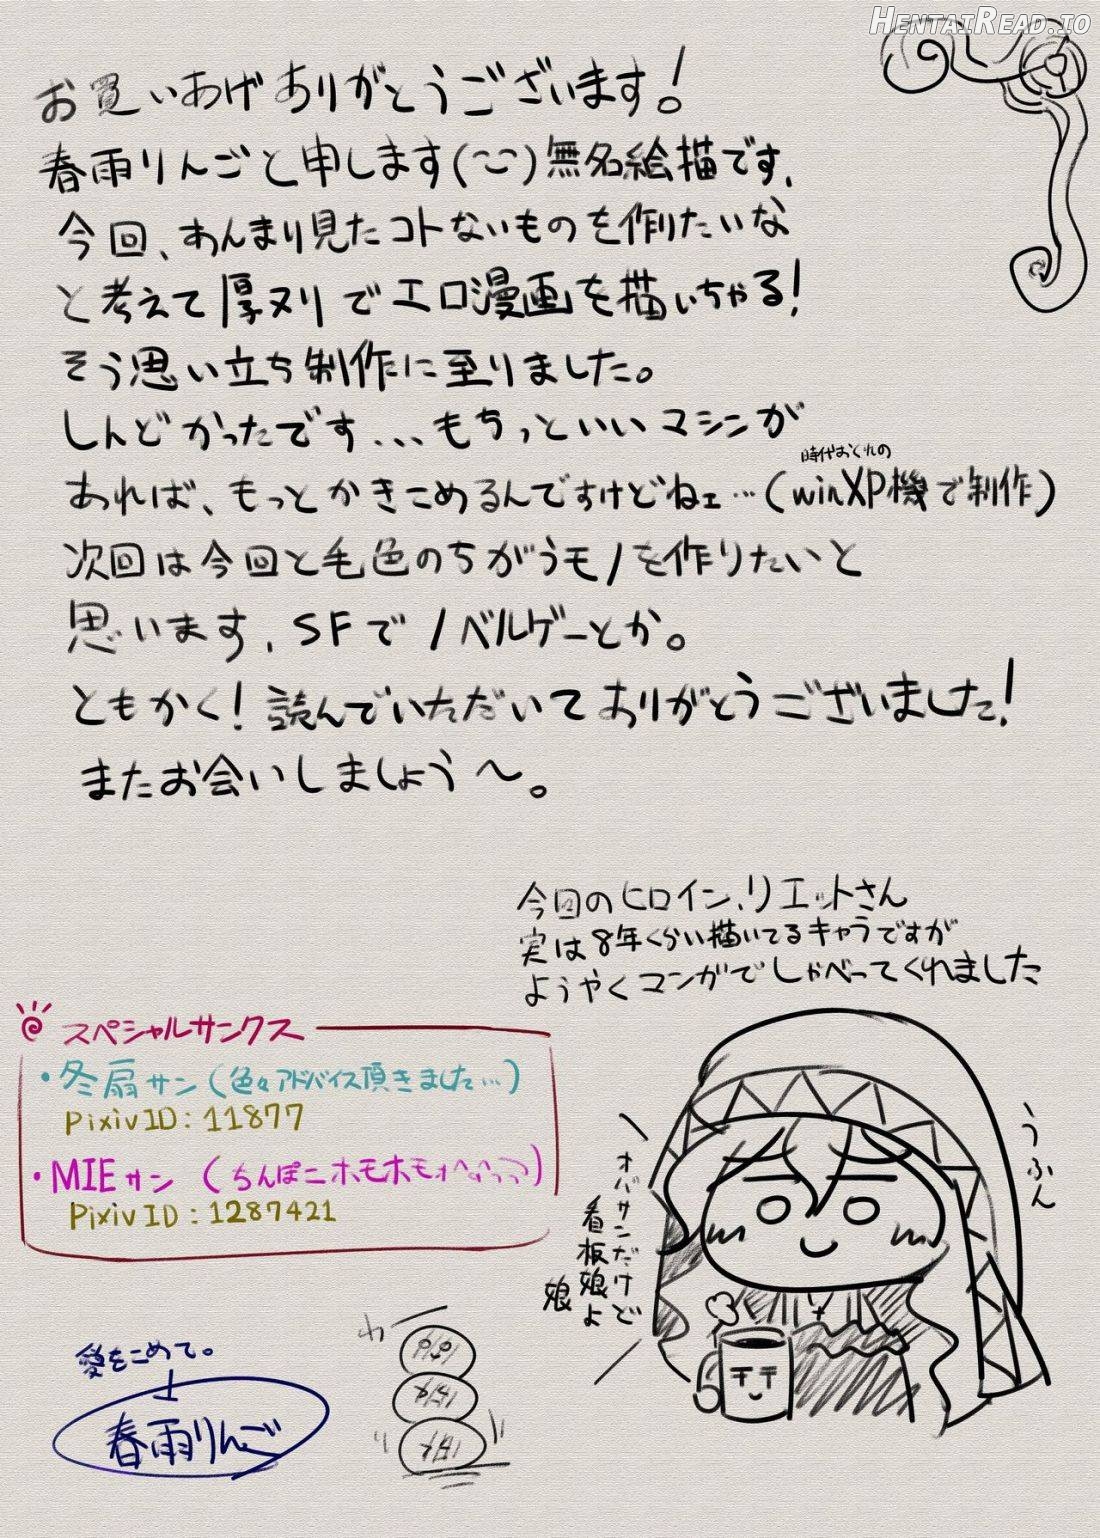 HENTAIREAD.IO
お買いあげありがとうございます!
春雨りんごと申します(~~)無名絵描です、
今回、あんまり見たコトないものを作りたいな
と考えて厚ヌリでエロ漫画を描いちゃる!
そう思い立ち制作に至りました。
しんどかったです...もちっといいマシンが
あれば、もっとかきこめるんですけどねェ…(winXP機で制作)
時代おくれの
次回は今回と毛色のちがうモノを作りたいと
思います、SFでノベルゲーとか。
ともかく!読んでいただいてありがとうございました!
またお会いしましょう〜。
今回のヒロイン、リエットさん
実は8年くらい描いてるキャラですが
ようやくマンガでしゃべってくれました
スペシャルサンクス
・冬扇サン(色々アドバイス頂きました…)
PixivID:11877
・MIEサン(ちんぽこホモホモ
PixivID:1287421
うふん
オバサンだけど
看板娘よ
娘
愛をこめて。
春雨りんご